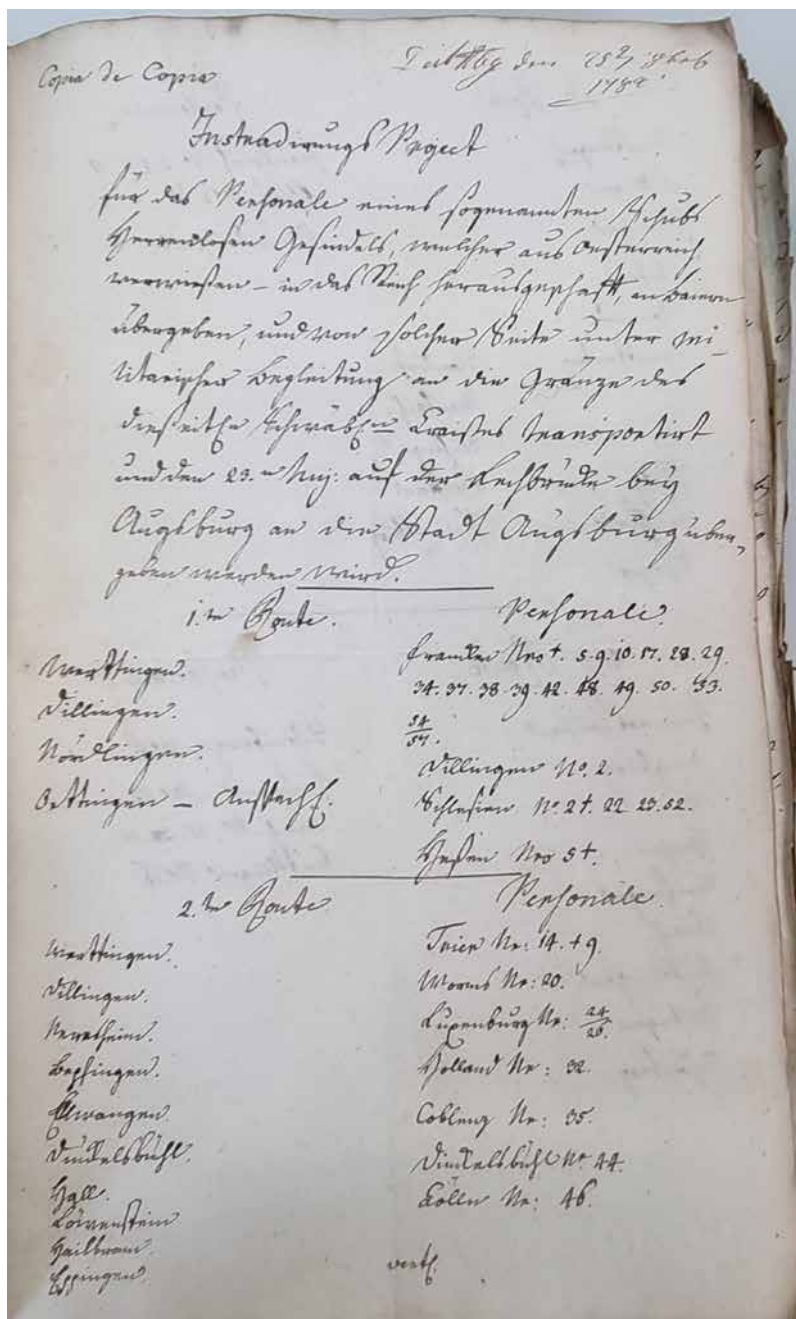 Copia de Copia
den 25ª 8beb
1782
Instradirungs Project
für das Personale eines sogenannten Schubs
Herrenlosen Gesindels, welcher aus Oesterreich
verwiesen – in das Reich herausgeschafft, an Baiern
übergeben, und von solcher Seite unter mi-
litarischer Begleitung an die Gränze des
diesseitn Schwäbn Craises transportirt
und den 23.n huj: auf der Lechbrücke bey
Augsburg an die Stadt Augsburg über-
geben werden wird.
1.te Route.
Personale.
Werttingen.
Dillingen.
Nördlingen.
Oettingen – Anspach
Francken Nro 1. 5. 9. 10. 17. 28. 29.
34. 37. 38. 39. 42. 48. 49. 50. 53.
54/57.
Dillingen No. 2.
Schlesien No. 21. 22 23. 52.
Heßen Nro 51.
2.te Route
Personale.
Werttingen.
Dillingen.
Neresheim.
Bopfingen.
Ellwangen.
Dinckelsbühl.
Hall.
Löwenstein
Hailbronn.
Eppingen.
Trier Nr: 14. 19.
Worms Nr: 20.
Luxenburg Nr: 24/26.
Holland Nr: 32.
Coblenz Nr: 35.
Dinckelsbühl Nr 44.
Cölln Nr: 46.